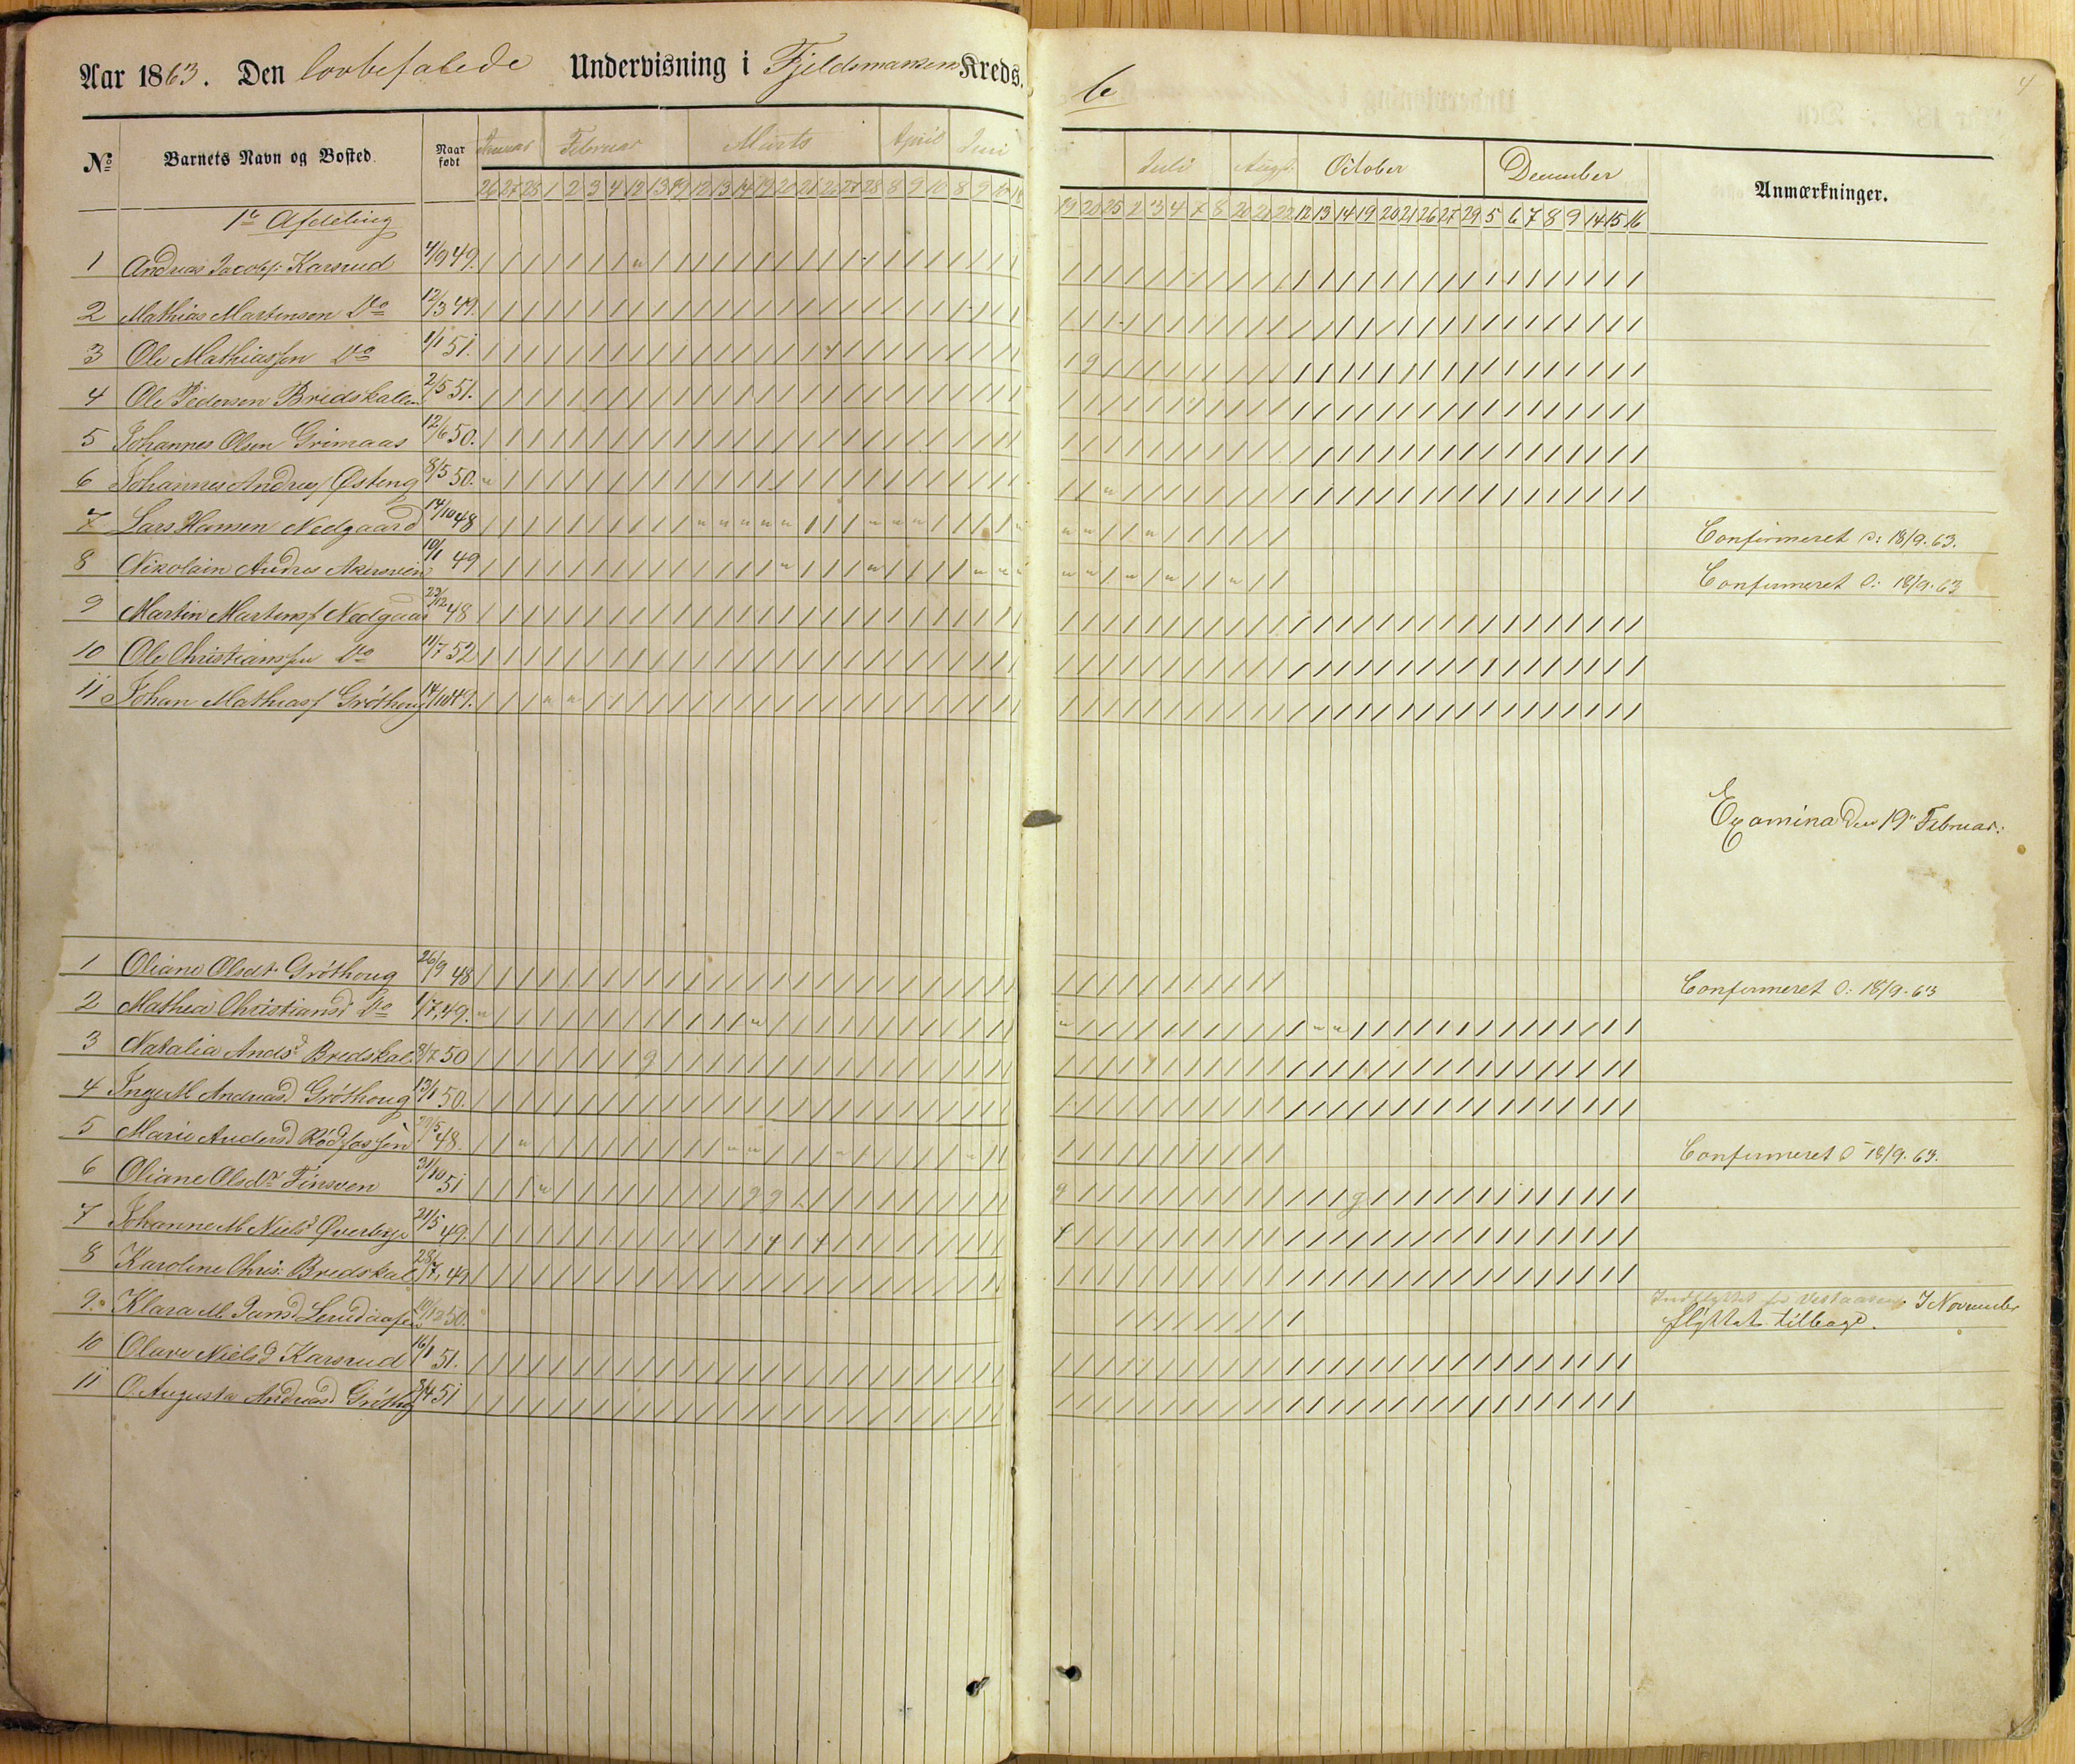 Aar 1863. Den lovbefalede Undervisning i Fjeldmarken Kreds.
6
4
No Barnets Navn og Bosted. Naar født Januar Februar Marts April Juni
26 27 28 1 2 3 4 12 13 19 12 13 14 19 20 21 26 27 28 8 9 10 8 9 10 18
Juli Augt. October December Anmærkninger.
19 20 25 2 3 4 7 8 20 21 22 12 13 14 19 20 21 26 27 29 5 6 7 8 9 14 15 16
1e Afdeling
1 Andreas Jacobs: Karsrud 4/9 49.
2 Mathias Martinsen Do 12/3 49.
3 Ole Mathiassen Do 1/1 51.
4 Ole Pedersen Bridskalen 2/5 51.
5 Johannes Olsen Grimaas 12/6 50.
6 Johannes Andreas Østeng 8/5 50.
7 Lars Hansen Nedgaard 14/10 48 Confirmeret d: 18/9. 63.
8 Nikolain Andres 10/1 49 Confirmeret d: 18/9. 63
9 Martin Martins Nedgaar 48
10 Ole Christiansen Do 11/7 52
11 Johan Mathias Gröthoug 14/10 49.
Examina den 19de Februar:
1 Oliane Olsdt. Gröthoug 26/9 48 Confirmeret d: 18/9. 63
2 Mathea Christiansd Do 1/7 49.
3 Natalia Andsd Bredskal. 8/7 50
4 Inger M Andreasd Gröthoug 13/1 50.
5 Marie Andersd 48. Confirmeret d 18/9. 63.
6 Oliane Olsdr Finsven 31/10 51
7 Johanne M Nielsd Øverbye 21/5 49.
8 Karoline Chris: Bredskal 28/7 49
9. Klara M. 19/12 50. Indflyttet fr Vestaasen, I November
flyttet tilbage.
10 Olave Nielsd Karsrud 16/1 51.
11 O. Augusta Andreasd Gröthug 3/4 51